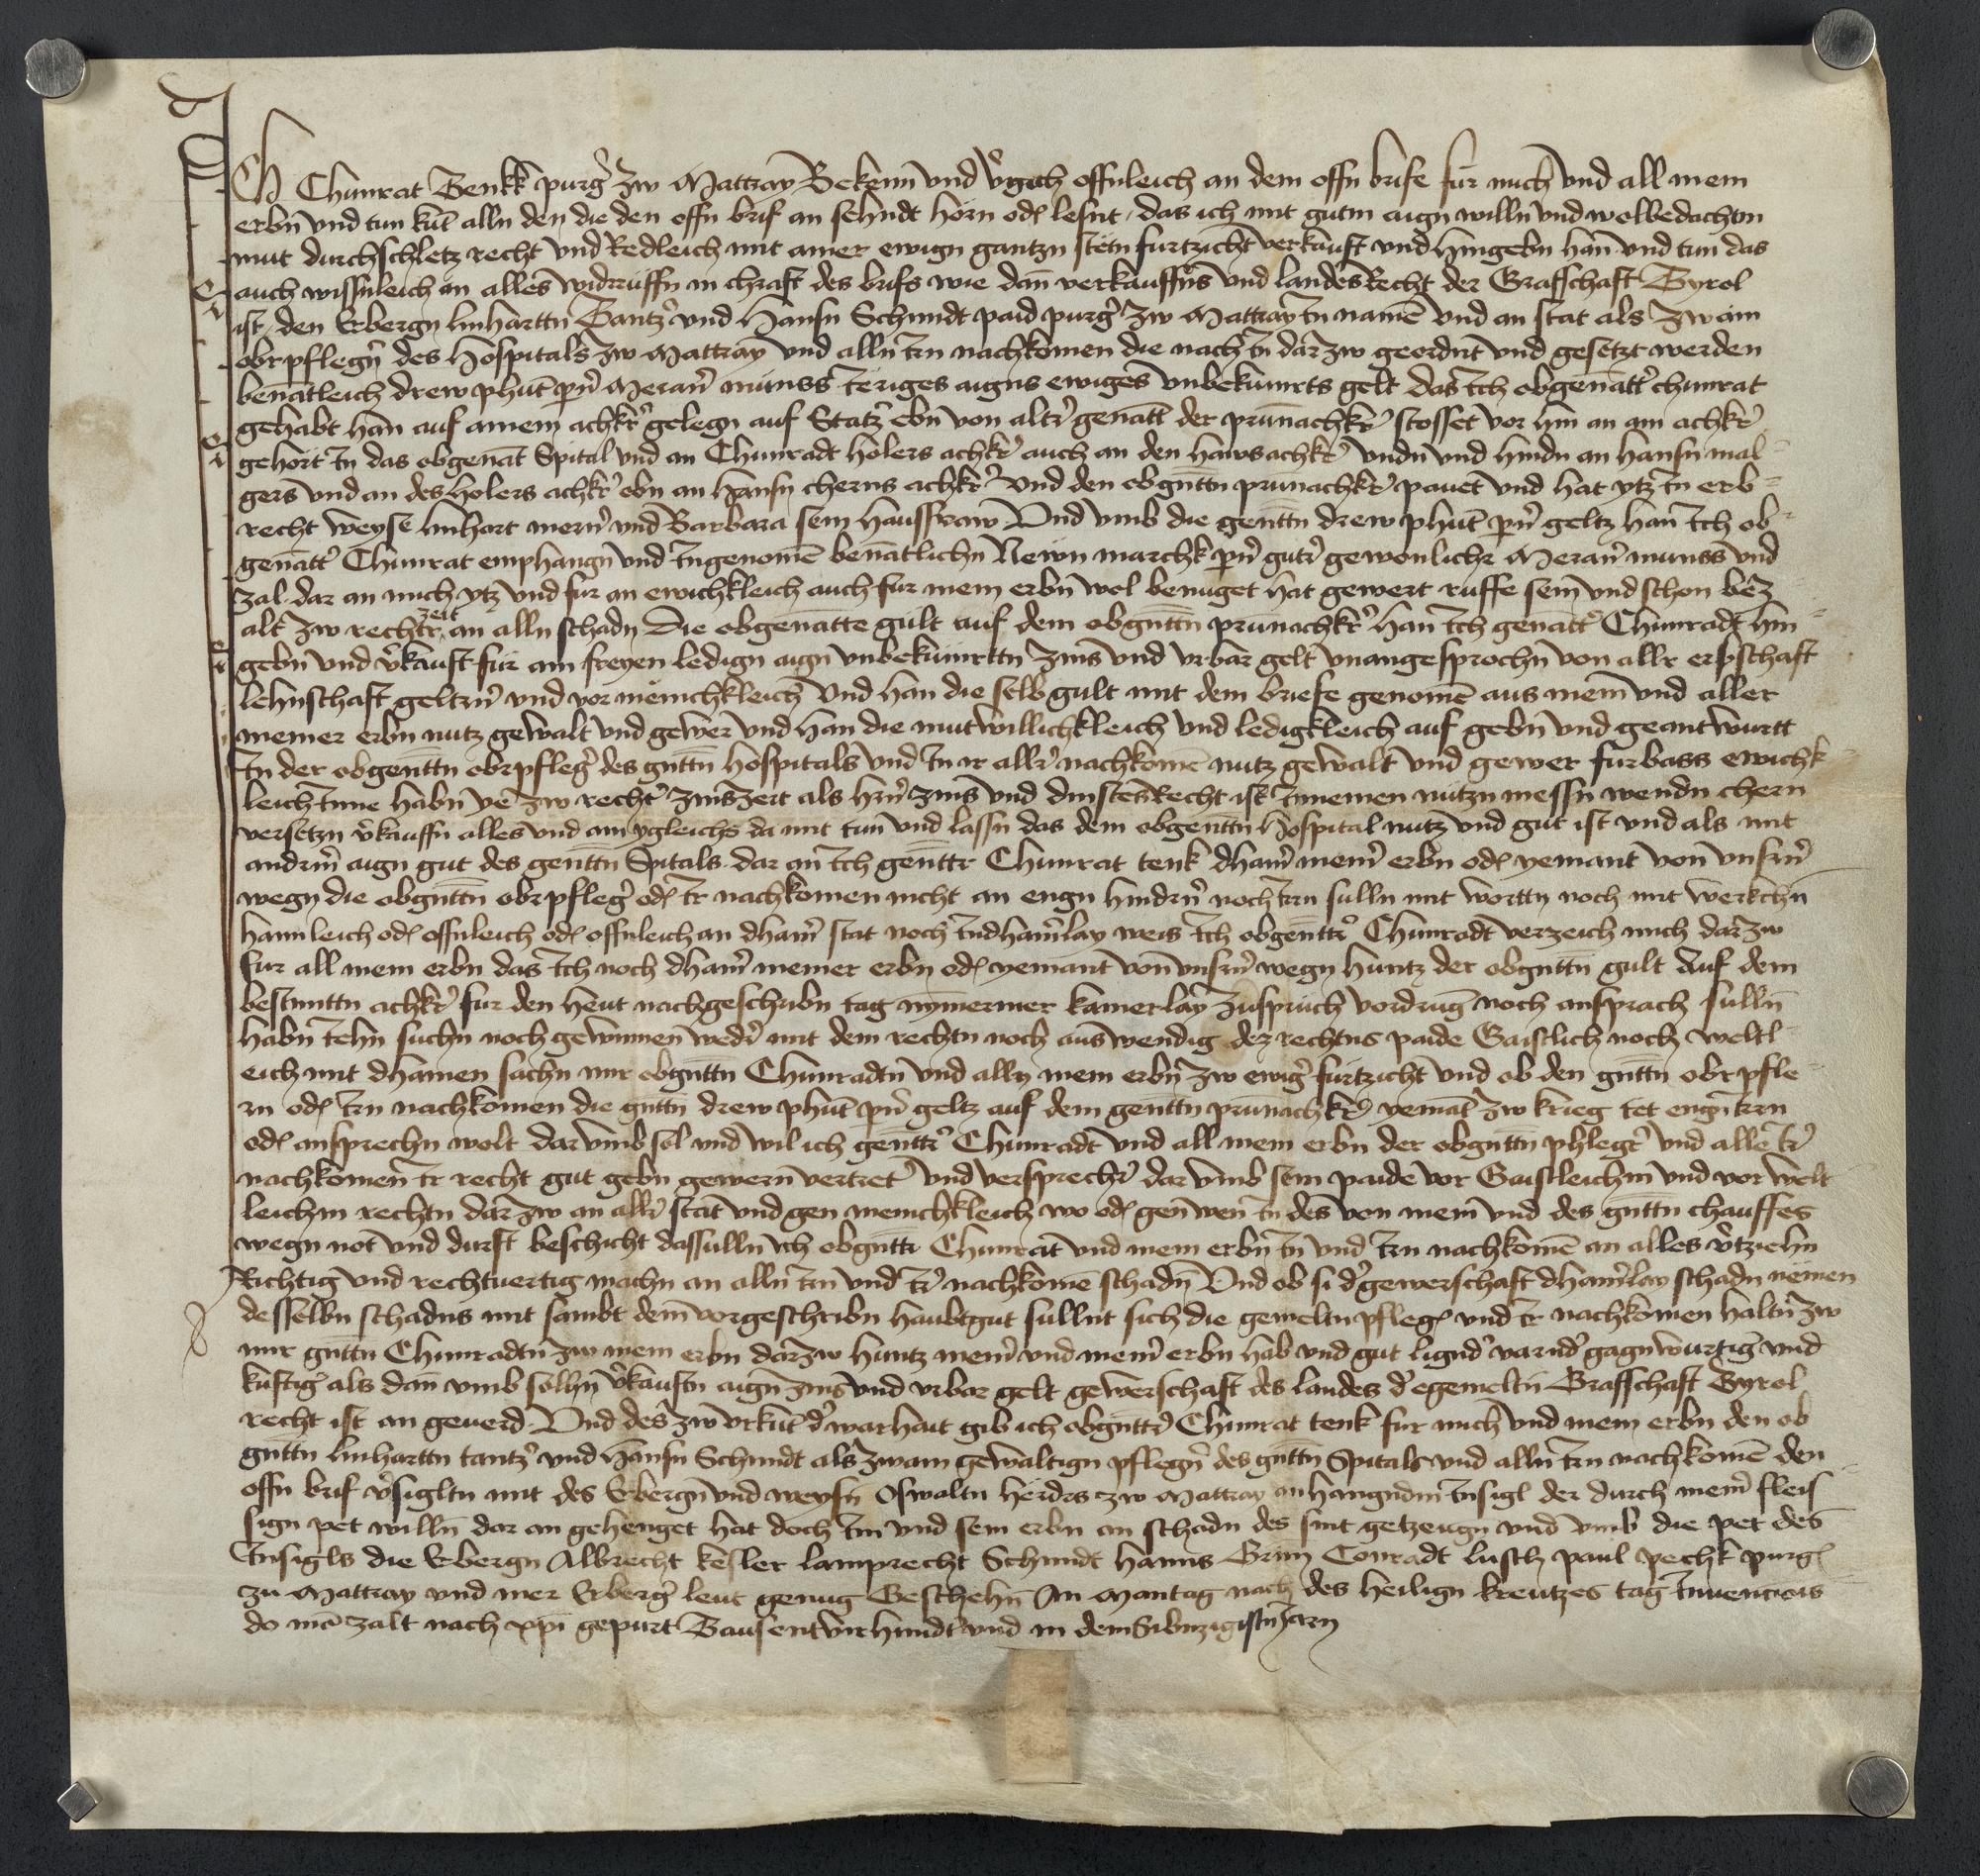 Ich Chunrat Tenkk purg' zw Mattray Bekenn vnd v'gich offnleich an dem offn brife fur mich vnd all mein
erbn vnd tun kūt alln den die den offn brif an sehndt horn od' lesnt, das ich mit gutm aign willn vnd wolbedachtm
mut durchschletz recht vnd Redleich mit ainer ewign gantzn stetn furtzicht verkauft vnd hingebn han vnd tun das
auch wissnleich an alles widrrüffn in chraft des brifs wie dan̄ verkauffns vnd landes Recht der Grafschaft Tyrol
ist, den Erbergn linharttn Tantz' vnd Hansn Schmidt paid purg' zw Mattray In namē vnd an stat als zwain
obrpflegn' des Hospitals zw Mattray vnd alln Irn nachkomen die nach In dar zw geordnt vnd gesetzt werden
benātleich drew phūt pn' Meran' munss Iäriges aigns ewiges vnbekumrts gelt das Ich obgenātt' chunrat
gehabt han auf ainem achkr' gelegn auf Statz' ebn von altr' genātt der prūnachkr' stosset vor hin an ain achkr'
gehort In das obgenāt Spital vnd an Chunradt holers achkr' auch an den hawsachkr' vndn vnd hindn an hansn mal-
gers vnd an des holers achkr' obn an Hansn cherns achkr' vnd den obgn̄ttn prunachkr' pauet vnd hat ytz In erb-
recht weyse linhart mern' vnd Barbara sein hausfraw Vnd vmb die gen̄ttn drew phūt pn' geltz han Ich ob-
genātt' Chunrat emphangn vnd Ingenomē benātlichn Newn marchk pn' gutr' gewonlichr Meran' munss vnd
zal dar an mich ytz vnd fur an ewichkleich auch fur mein erbn wol benuget hat gewert ruffe sein vnd schon bez
alt zw rechtr zeit an alln schadn Die obgenātte gült auf dem obgn̄ttn prunachkr' han Ich genātt' Chunradt hin-
gebn vnd v'kauft für ain freyen ledign aign vnbekumrttn zins vnd vrbar gelt vnangesprochn von allr erbschaft
lehnschaft geltrn' vnd vor mēnichkleich Vnd han die selb gult mit dem briefe genomē aus mein vnd aller
meiner erbn nutz gewalt vnd gewer vnd han die mutwillichkleich vnd ledigkleich auf gebn vnd geantwurtt
In der obgen̄ttn obrpfleg' des gn̄ttn hospitals vnd In ir allr' nachkomē nutz gewalt vnd gewer furbass ewichk-
leich Inne habn ye zw recht' zinszeit als hrn' zins vnd dinstes Recht ist Innemen nutzn niessn wendn chern
versetzn v'kauffn alles vnd ain ygleichs da mit tun vnd lassn das dem obgen̄ttn Hospital nutz vnd gut ist vnd als mit
andrm' aign gut des gen̄ttn Spitals dar an Ich gen̄ttr Chunrat tenk dhain' mein' erbn od' yemant von vnsrn'
wegn die obgn̄ttn obrpfleg' od' Ir nachkomen nicht an engn hindrn' noch Irrn sulln mit worttn noch mit werkchn
haimleich od' offnleich od' offnleich an dhain' stat noch In dhain'lay weis Ich obgen̄ttr' Chunradt verzeich mich dar zw
fur all mein erbn das Ich noch dhain' meiner erbn od' yemant von vnsrn' wegn hintz der obgn̄ttn gult Auf dem
bestimttn achkr' fur den heut nachgeschribn tag nymermer kainerlay zuspruch vordrug noch ansprach sulln
habn Iehn suchn noch gewinnen wedr' mit dem rechtn noch auswendig dez rechtns paide Gaistlich noch weltl-
eich mit dhainen sachn mir obgn̄ttn Chunradtn vnd alln mein erbn zw ewig' furtzicht vnd ob den gn̄ttn obrpfle-
rn od' Irn nachkomen die gn̄ttn drew phūt pn' geltz auf dem gen̄ttn prūnachkr' yemāt zw krieg tet engn Irrn
od' ansprechn wolt dar vmb sol vnd wil ich gen̄ttr' Chunradt vnd all mein erbn der obgn̄ttn phlegr' vnd alle Ir'
nachkomen Ir recht gut gebn gewern vertret' vnd versprechr' dar vmb sein paide vor Gaistleichm vnd vor welt
leichm rechtn dar zw an allr' stat vnd gen menichkleich wo od' gen wen In des von mein vnd des gn̄ttn chauffes
wegn not vnd durft beschicht das sulln ich obgn̄ttr Chunrat vnd mein erbn In vnd Irn nachkomē an alles v'tziehn
Richtig vnd rechtuertig machn an alln Irn vnd Ir' nachkomē schadn Vnd ob si d' gewerschaft dhain'lay schadn nemen
desselbn schadns mit sambt dem vorgeschribn haubtgut sullnt sich die gemeltn pfleg' vnd Ir nachkomen haltn zw
mir gn̄ttn Chunradtn zw mein erbn dar zw hintz mein' vnd mein' erbn hab vnd gut lignd' varnd' gagnwurtig vnd
kuftig' als dan̄ vmb solhn v'kauftn aign zins vnd vrbar gelt gewerschaft des landes d' egemeltn Graffschaft Tyrol
recht ist an geuerd Vnd des zw vrkūt d' warhait gib ich obgn̄ttr' Chunrat tenk fur mich vnd mein erbn den ob
gn̄ttn linharttn tantz' vnd Hansn Schmidt als zwain gewaltign pflegn' des gn̄ttn Spitals vnd alln Irn nachkomē den
offn brif v'sigltn mit des Erbergn vnd weysn Oswaltn herdrs zw Mattray anhangndm Insigl der durch mein' fleis
sign pet willn dar an gehenget hat doch Im vnd sein erbn an schadn des sint getzeugn vnd vmb die pet des
Insigls die Erbergn Albrecht kesler lamprecht Schmidt hanns Grim Conradt lusch paul pechk purg'
zu Mattray vnd mer Erberg' leut genug Geschehn Am Mantag nach des heilign kreutzes tag Inuencois
do mā zalt nach xpi gepurt Tausent virhundt' vnd in dem Sibnzigistn Jarn